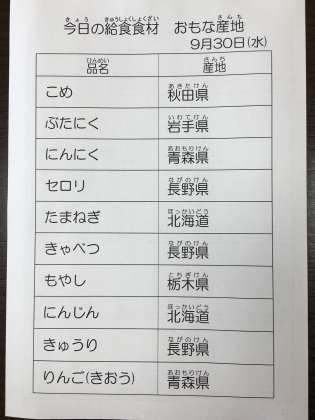 今日の給食食材 おもな産地
9月30日(水)
品名 産地
こめ 秋田県
ぶたにく 岩手県
にんにく 青森県
セロリ 長野県
たまねぎ 北海道
きゃべつ 長野県
もやし 栃木県
にんじん 北海道
きゅうり 長野県
りんご(きおう) 青森県